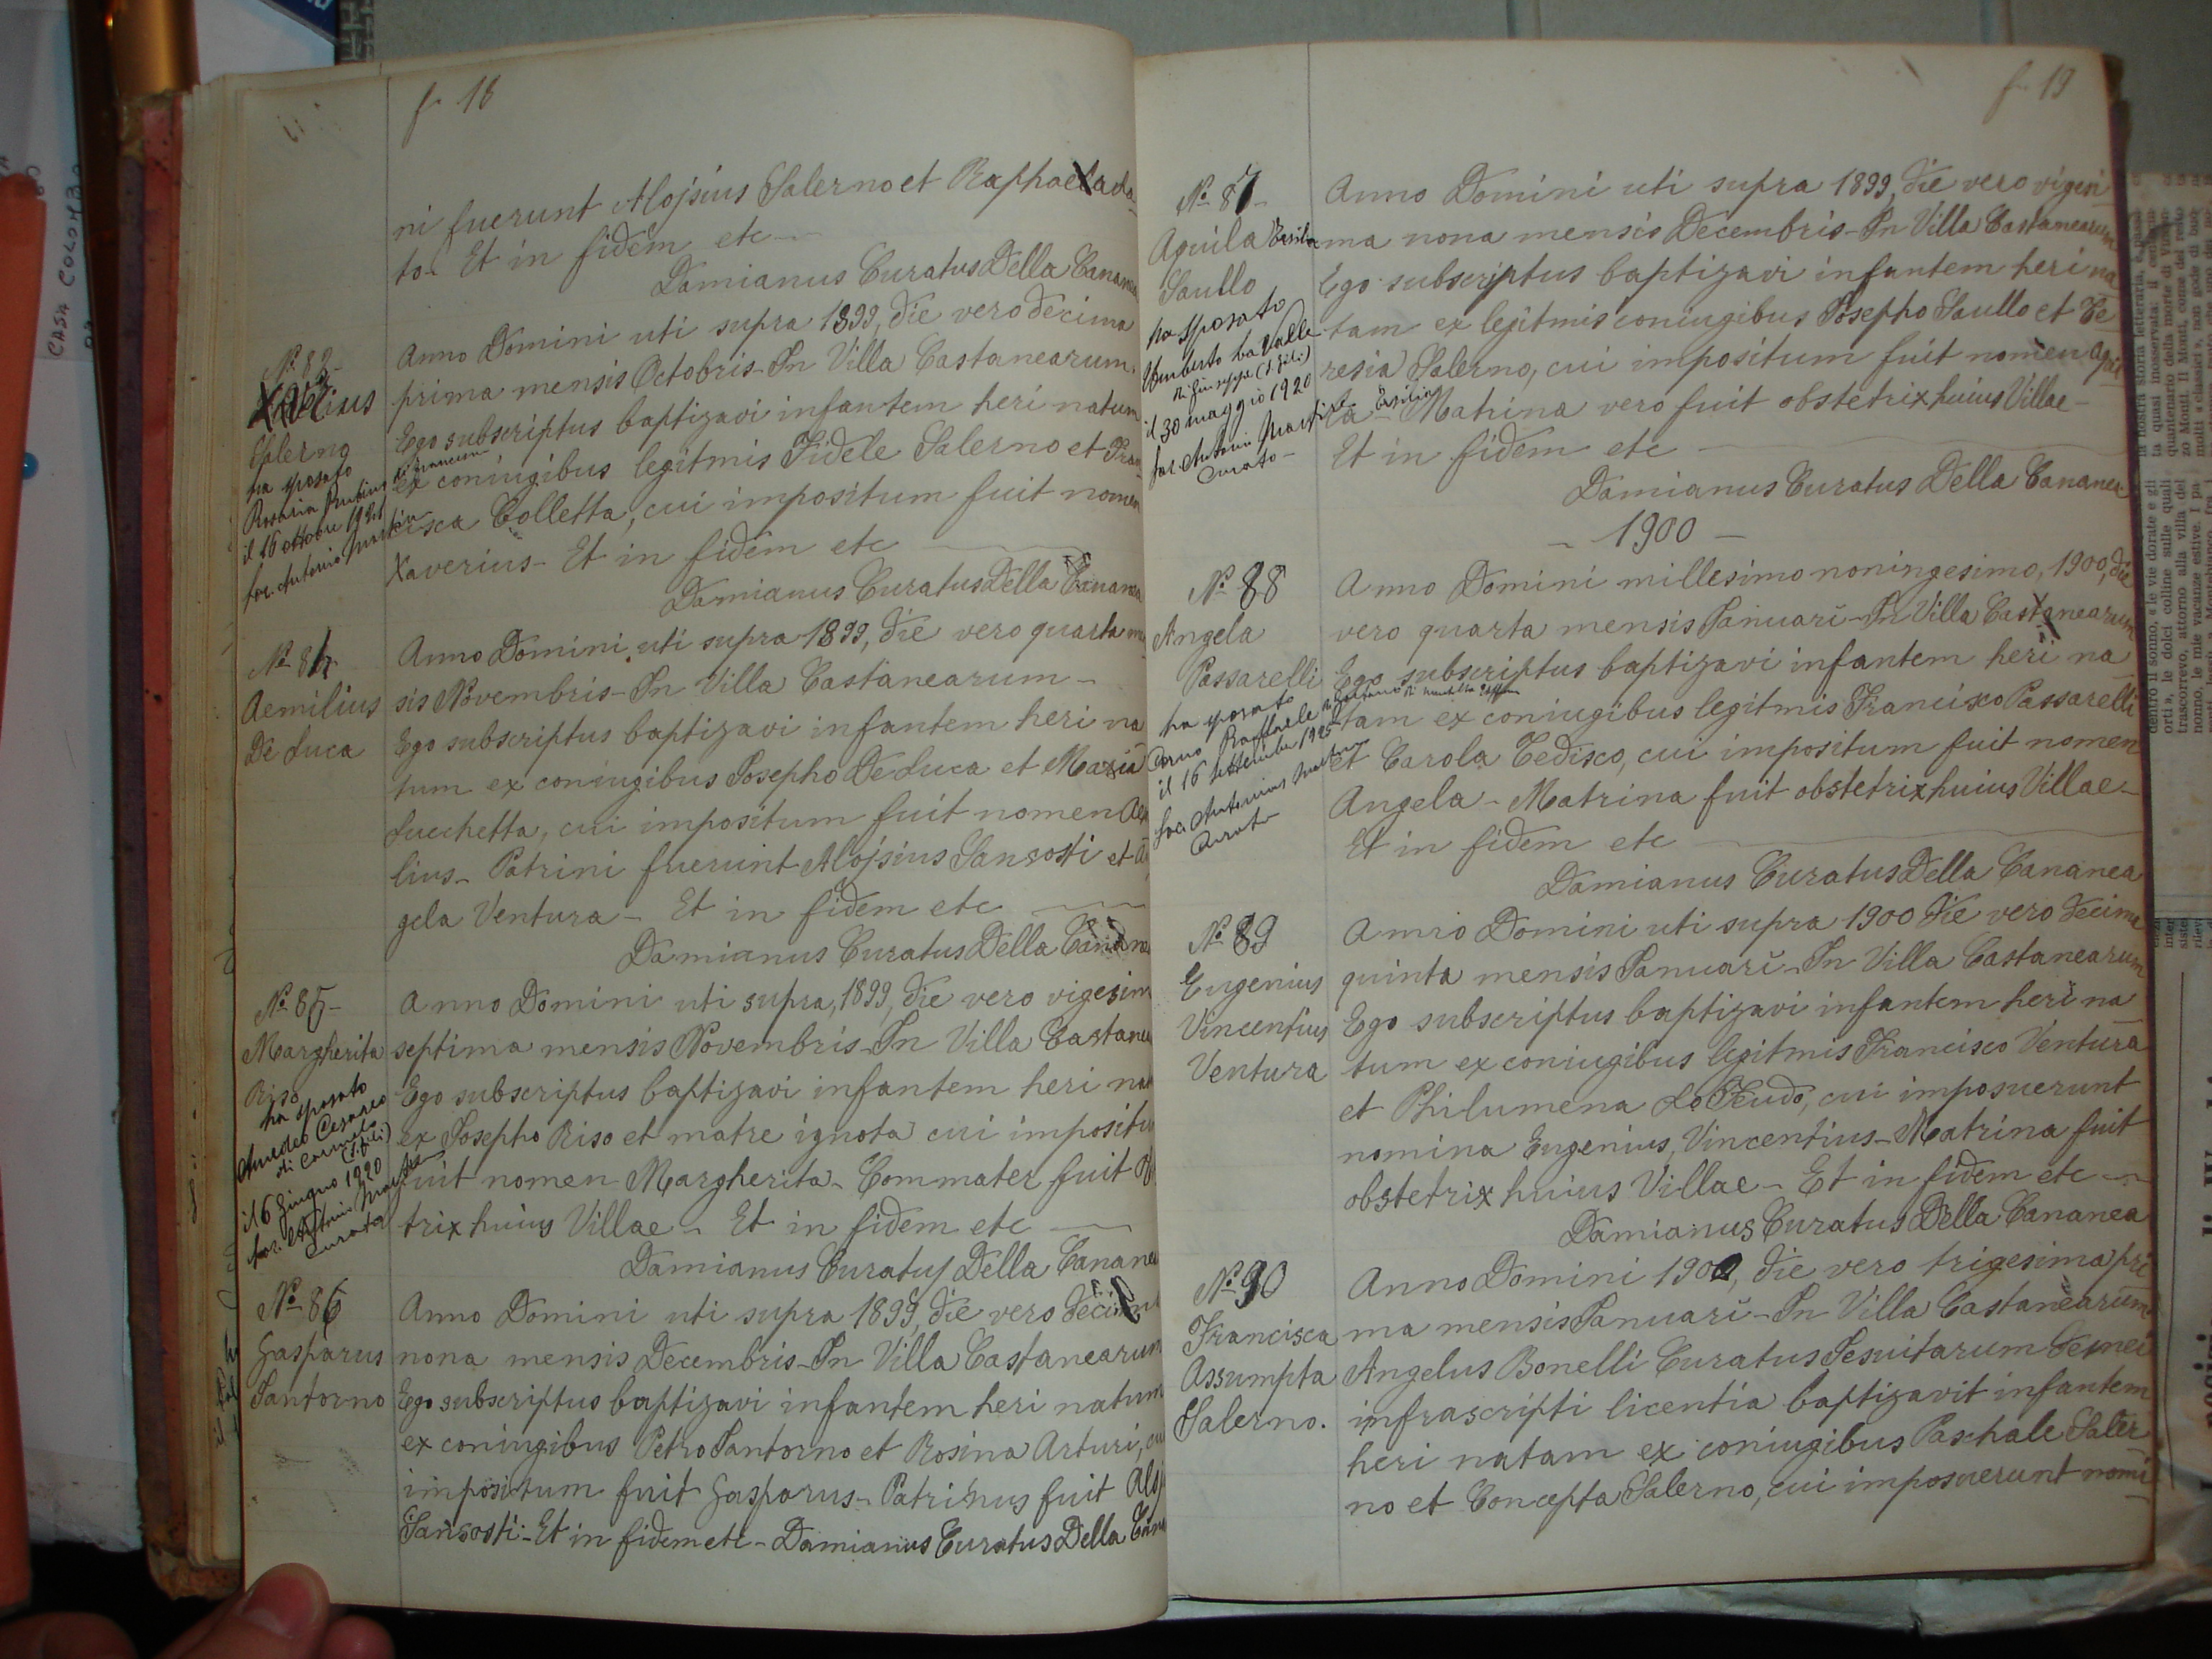 f. 18
ni fuerunt Alojsius Salerno et Raphaela do
to. Et in fidem etc
Damianus Curatus Della Cananea
No 83-
Xaverius
Salerno
ha sposato
Rosaria Rubino di Francesco
il 16 ottobre 1921
sac. Antonio
Anno Domini uti supra 1899, die vero decima
prima mensis Octobris-In Villa Castanearum.
Ego subscriptus baptizavi infantem heri natum
ex coniugibus legitmis Fidele Salerno et Fran
cisca Colletta, cui impositum fuit nomen
Xaverius- Et in fidem etc
Damianus Curatus Della Cananea
No 84
Aemilius
De Luca
Anno Domini uti supra 1899, die vero quarta me
sis Novembris-In Villa Castanearum-
Ego subscriptus baptizavi infantem heri na
tum ex coniugibus Josepho De Luca et Maria
Lucchetta, cui impositum fuit nomen Aemi
lius- Patrini fuerunt Alojsius Sansosti et An
gela Ventura- Et in fidem etc
Damianus Curatus Della Canane
No 85-
Margherita
Riso
ha sposato
Amedeo Cesareo
di Carmelo
il 6 giugno 1920
Curato
Anno Domini uti supra, 1899, die vero vigesim
septima mensis Novembris-In Villa Castane
Ego subscriptus baptizavi infantem heri nat
ex Josepho Riso et matre ignota cui impositu
fuit nomen Margherita- Commater fuit
trix huius Villae- Et in fidem etc
Damianus Curatus Della Canane
No 86
Gasparus
Santorno
Anno Domini uti supra 1899, die vero decim
nona mensis Decembris-In Villa Castanearum
Ego subscriptus baptizavi infantem heri natum
ex coniugibus Petro Santorno et Rosina Arturi, cu
impositum fuit Gasparus- Patrinus fuit Aloj
Sansosti-Et in fidem etc-Damianus Curatus Della Cana
f. 19
No 87-
Aquila Ersilia
Saullo
ha sposato
Umberto La Valle
di Giuseppe
il 30 maggio 1920
sac. Antonio
Curato-
Anno Domini uti supra 1899, die vero vigesi
ma nona mensis Decembris-In Villa Castanearum
Ego subscriptus baptizavi infantem heri na
tam ex legitmis coniugibus Josepho Saullo et Te
resia Salerno, cui impositum fuit nomen Aqui
la Ersilia- Matrina vero fuit obstetrix huius Villae-
Et in fidem etc
Damianus Curatus Della Cananea
- 1900 -
No 88
Angela
Passarelli
ha sposato
Raffaele
il 16 settembre 1925
Sac. Antonius
Curato
Anno Domini millesimo noningesimo, 1900, die
vero quarta mensis Januari-In Villa Castanearum
Ego subscriptus baptizavi infantem heri na
tam ex coniugibus legitmis Francisco Passarelli
et Carola Tedisco, cui impositum fuit nomen
Angela- Matrina fuit obstetrix huius Villae-
Et in fidem etc
Damianus Curatus Della Cananea
No 89
Eugenius
Vincentius
Ventura
Anno Domini uti supra 1900 die vero decima
quinta mensis Januari-In Villa Castanearum
Ego subscriptus baptizavi infantem heri na
tum ex coniugibus legitmis Francisco Ventura
et Philumena Lo Feudo, cui imposuerunt
nomina Eugenius, Vincentius-Matrina fuit
obstetrix huius Villae- Et in fidem etc
Damianus Curatus Della Cananea
No 90
Francisca
Assumpta
Salerno.
Anno Domini 1900, die vero trigesima pri
ma mensis Januari-In Villa Castanearum
Angelus Bonelli Curatus Jesuitarum de mei
infrascripti licentia baptizavit infantem
heri natam ex coniugibus Paschale Saler
no et Concepta Salerno, cui imposuerunt nomi
CASA COLOMBO